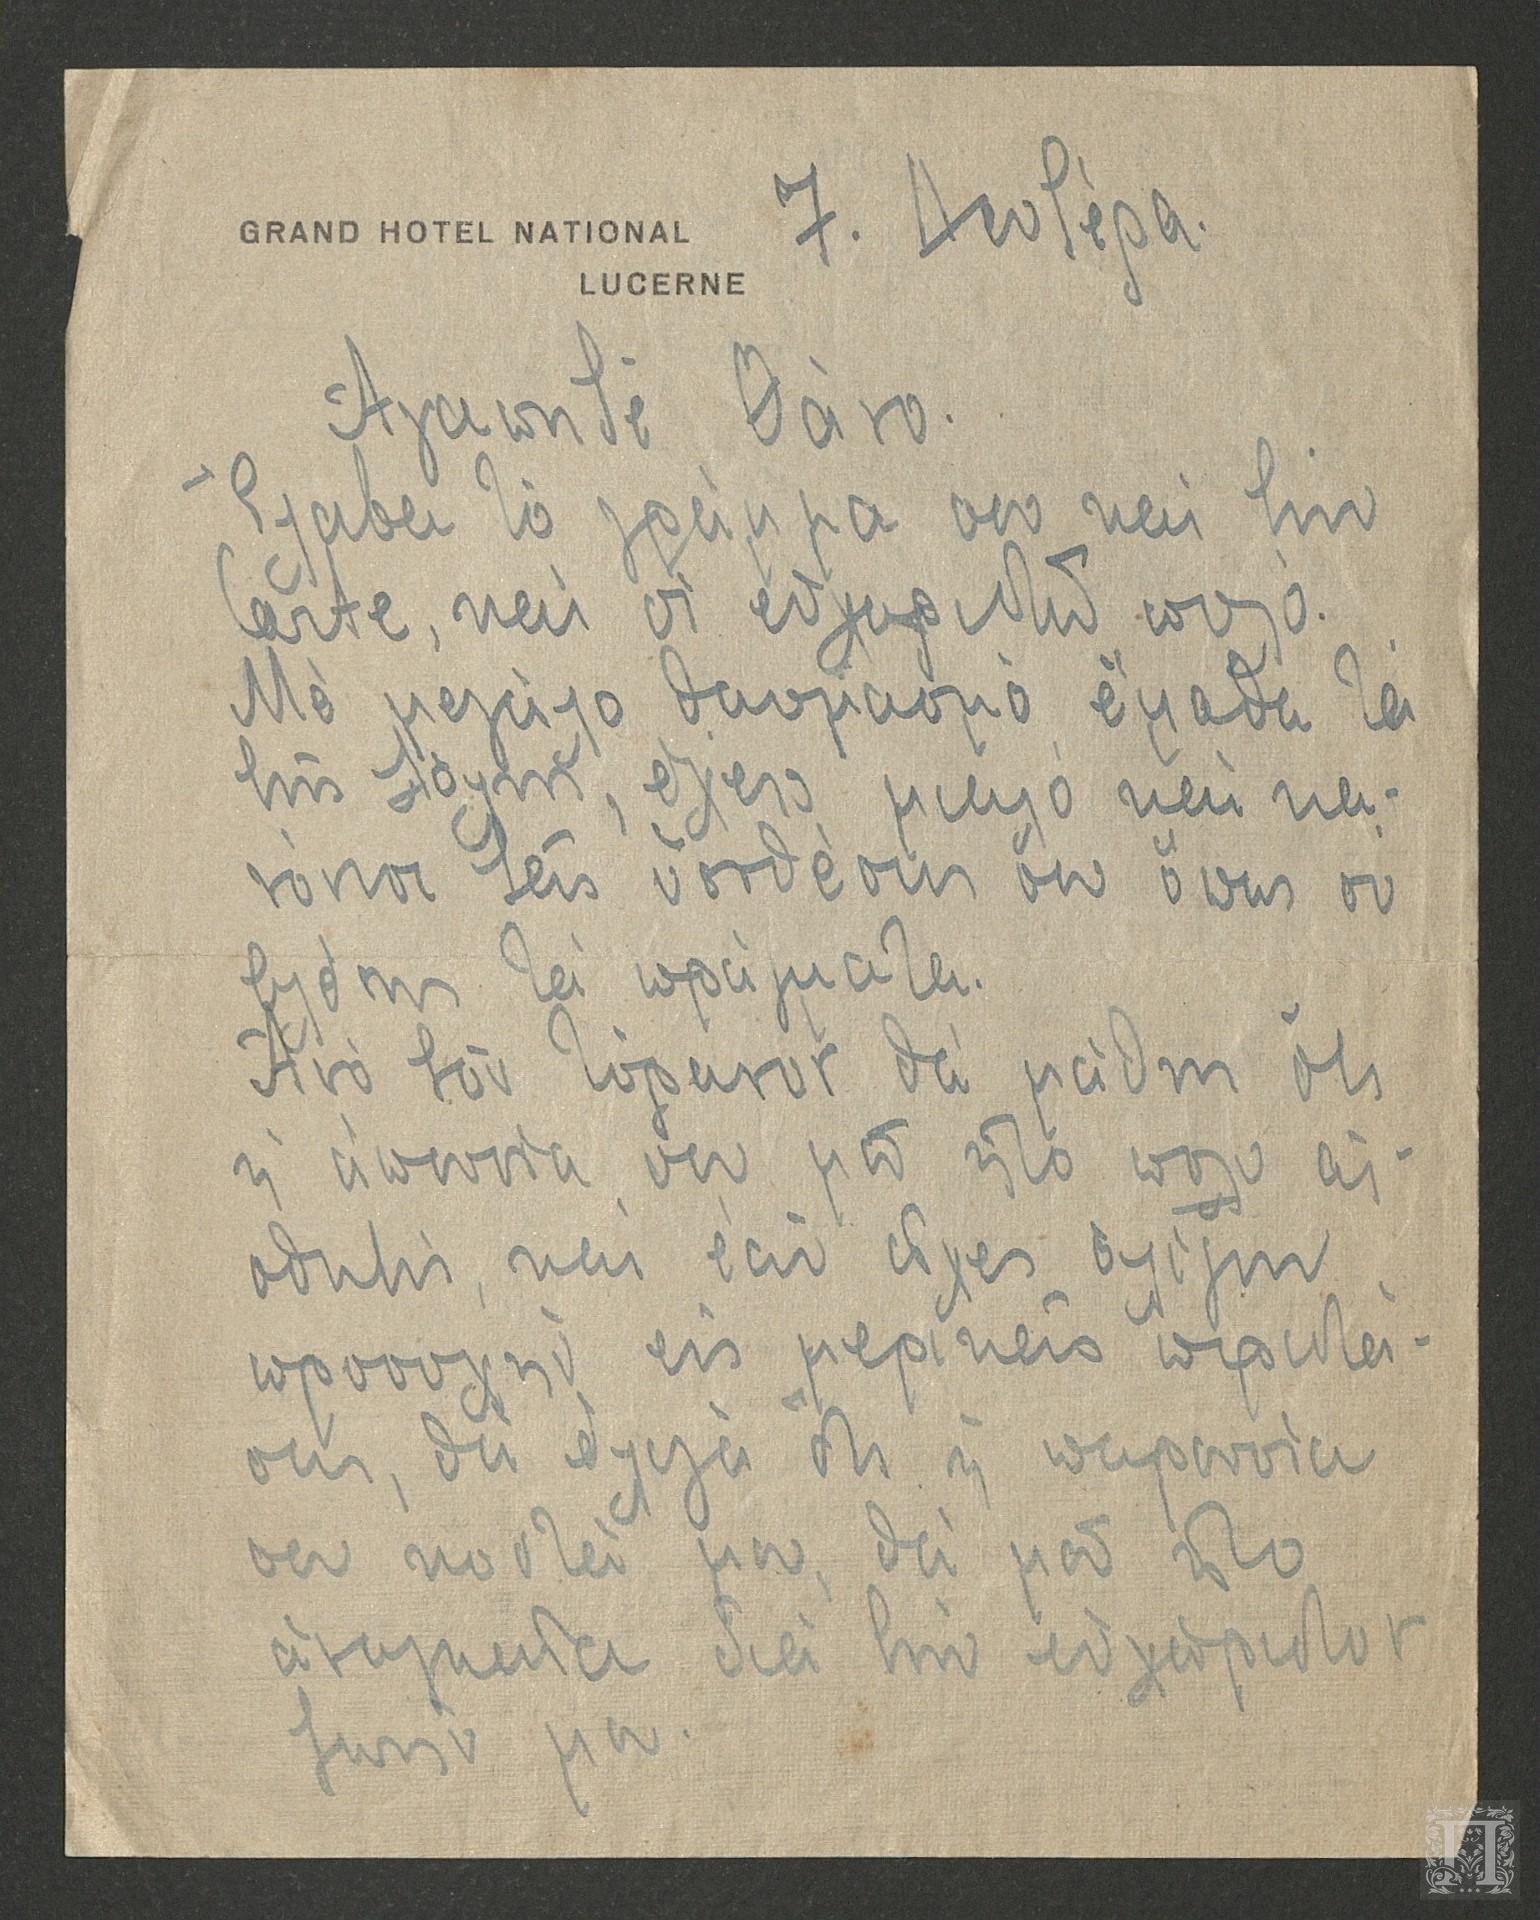 GRAND HOTEL NATIONAL
LUCERNE
7. Δευτέρα.
Ἀγαπητέ Θάνο.
Ἔλαβα τό γράμμα σου καί τήν
Carte, καί σέ εὐχαριστῶ πολύ.
Μέ μεγάλο θαυμασμό ἔμαθα τά
τῆς, ἔχεις μυαλό καί κα-
νόνισε τάς ὑποθέσεις σου ὅπως σύ
τά πράγματα.
Ἀπό τόν τύραννον θά μάθῃς ὅτι
ἡ ἀπουσία σου μοῦ ἦτο πολύ αἰ-
σθητή, καί ἐάν εἶχες ὀλίγην
προσοχήν εἰς μερικάς περιστά-
σεις, θά ἔλεγα ὅτι ἡ παρουσία
σου κοντά μου, θά μοῦ ἦτο
ἀναγκαία διά τήν εὐχάριστον
ζωήν μου.